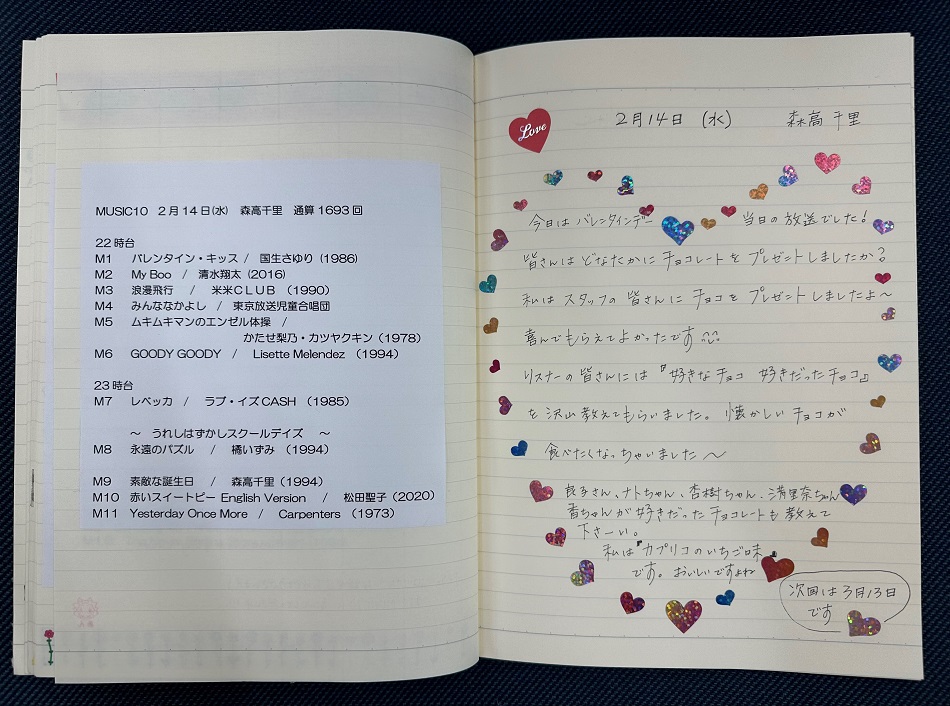 MUSIC10 2月14日(水) 森高千里 通算1693回
22時台
M1 バレンタイン・キッス / 国生さゆり (1986)
M2 My Boo / 清水翔太 (2016)
M3 浪漫飛行 / 米米CLUB (1990)
M4 みんななかよし / 東京放送児童合唱団
M5 ムキムキマンのエンゼル体操 /
かたせ梨乃・カツヤクキン (1978)
M6 GOODY GOODY / Lisette Melendez (1994)
23時台
M7 レベッカ / ラブ・イズCASH (1985)
~ うれしはずかしスクールデイズ ~
M8 永遠のパズル / 橘いずみ (1994)
M9 素敵な誕生日 / 森高千里 (1994)
M10 赤いスイートピー English Version / 松田聖子 (2020)
M11 Yesterday Once More / Carpenters (1973)
Love
2月14日 (水) 森高千里
今日は バレンタインデー 当日の放送でした!
皆さんは どなたかに チョコレートを プレゼントしましたか?
私は スタッフの皆さんに チョコを プレゼントしましたよ〜
喜んでもらえてよかったです
リスナーの皆さんには『好きなチョコ 好きだったチョコ』
を 沢山教えてもらいました。懐かしい チョコが
食べたくなっちゃいました〜
良子さん、ナトちゃん、杏樹ちゃん、満里奈ちゃん
香ちゃんが好きだったチョコレートも教えて
下さーい。
私は『カプリコのいちご味』
です。おいしいですよね
次回は3月13日
です